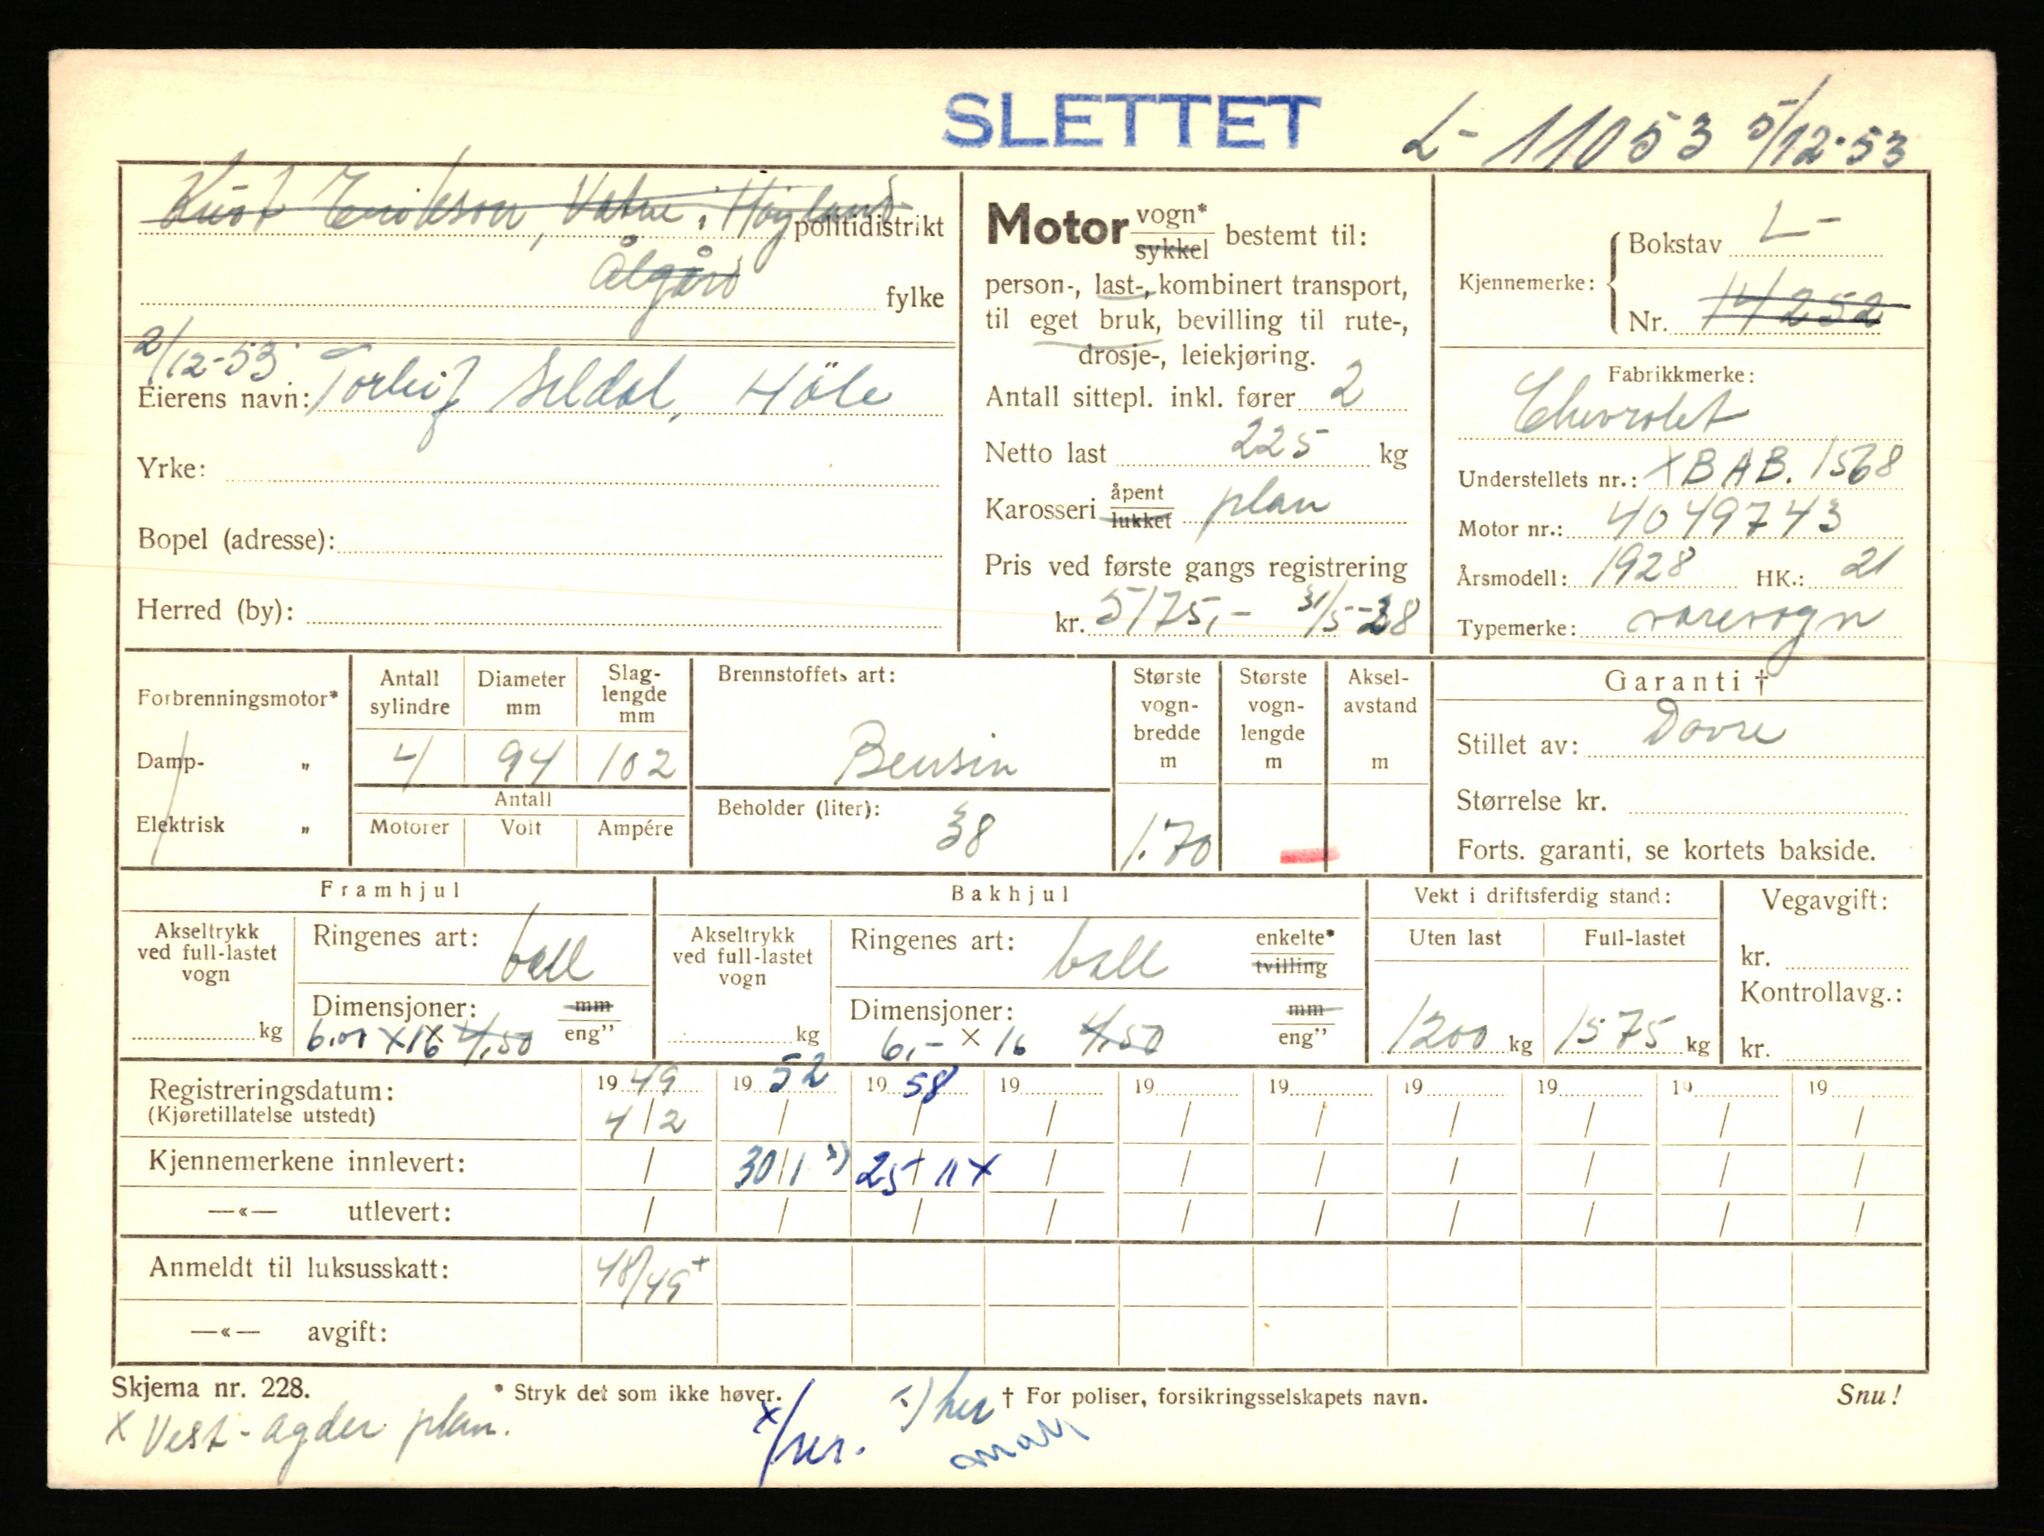 SLETTET L- 11053 5/12-53
Knut Erikson, Vatne, Høyland politidistrikt
Ålgård fylke
2/12-53.
Eierens navn: Torleif Seldal, Höle
Yrke:
Bopel (adresse):
Herred (by):
Motor vogn* sykkel bestemt til:
person-, last-, kombinert transport,
til eget bruk, bevilling til rute-,
drosje-, leiekjøring.
Antall sittepl. inkl. fører 2
Netto last 225 kg
Karosseri åpent lukket plan
Pris ved første gangs registrering
kr. 5175,- 31/5-28
Kjennemerke: Bokstav L-
Nr. 14252
Fabrikkmerke:
Chevrolet
Understellets nr.: XBAB. 1568
Motor nr.: 4049743
Årsmodell: 1928 HK.: 21
Typemerke: varevogn
Forbrenningsmotor*
Damp- „
Elektrisk „
Antall sylindre
4
Diameter mm
94
Slag-lengde mm
102
Antall
Motorer Volt Ampére
Brennstoffets art:
Bensin
Beholder (liter):
38
Største vogn-bredde m
1.70
Største vogn-lengde m
Aksel-avstand m
Garanti †
Stillet av: Dovre
Størrelse kr.
Forts. garanti, se kortets bakside.
Framhjul
Akseltrykk ved full-lastet vogn
kg
Ringenes art: ball
Dimensjoner: mm eng"
6,00 x 16 4,50
Bakhjul
Akseltrykk ved full-lastet vogn
kg
Ringenes art: ball enkelte* tvilling
Dimensjoner: mm eng"
6,- x 16 4,50
Vekt i driftsferdig stand:
Uten last Full-lastet
1200 kg 1575 kg
Vegavgift:
kr.
Kontrollavg.:
kr.
Registreringsdatum: 19 49 19 52 19 58 19 19 19 19 19 19 19
(Kjøretillatelse utstedt) 4/2 / / / / / / / / /
Kjennemerkene innlevert: / 30/1 25/11 x / / / / / / /
—«— utlevert: / / / / / / / / / /
Anmeldt til luksusskatt: 48/49+
—«— avgift:
Skjema nr. 228. * Stryk det som ikke høver. † For poliser, forsikringsselskapets navn. Snu!
x Vest-agder plan.